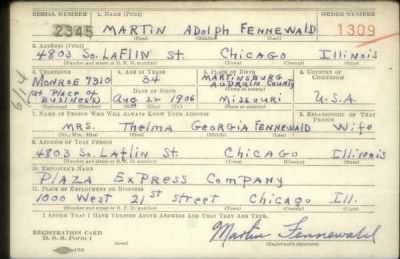 SERIAL NUMBER 1. NAME (Print) ORDER NUMBER
2345 MARTIN ADOLPH FENNEWALD 1309
2. ADDRESS (Print)
4803 So. LAFLIN St. CHICAGO ILLINOIS
3. TELEPHONE 4. AGE IN YEARS 5. PLACE OF BIRTH 6. COUNTRY OF CITIZENSHIP
MONROE 7310 34 MARTINSBURG
AUDRAIN County
(at Place of Business) Aug 22 1906 MISSOURI U.S.A.
6/14
7. NAME OF PERSON WHO WILL ALWAYS KNOW YOUR ADDRESS 8. RELATIONSHIP OF THAT PERSON
MRS. Thelma GEORGIA FENNEWALD Wife
9. ADDRESS OF THAT PERSON
4803 So. Laflin St. CHICAGO ILLINOIS
10. EMPLOYER'S NAME
PLAZA EXPRESS COMPANY
11. PLACE OF EMPLOYMENT OR BUSINESS
1000 West 21st street Chicago Ill.
I AFFIRM THAT I HAVE VERIFIED ABOVE ANSWERS AND THAT THEY ARE TRUE.
REGISTRATION CARD
D. S. S. FORM 1
Martin Fennewald